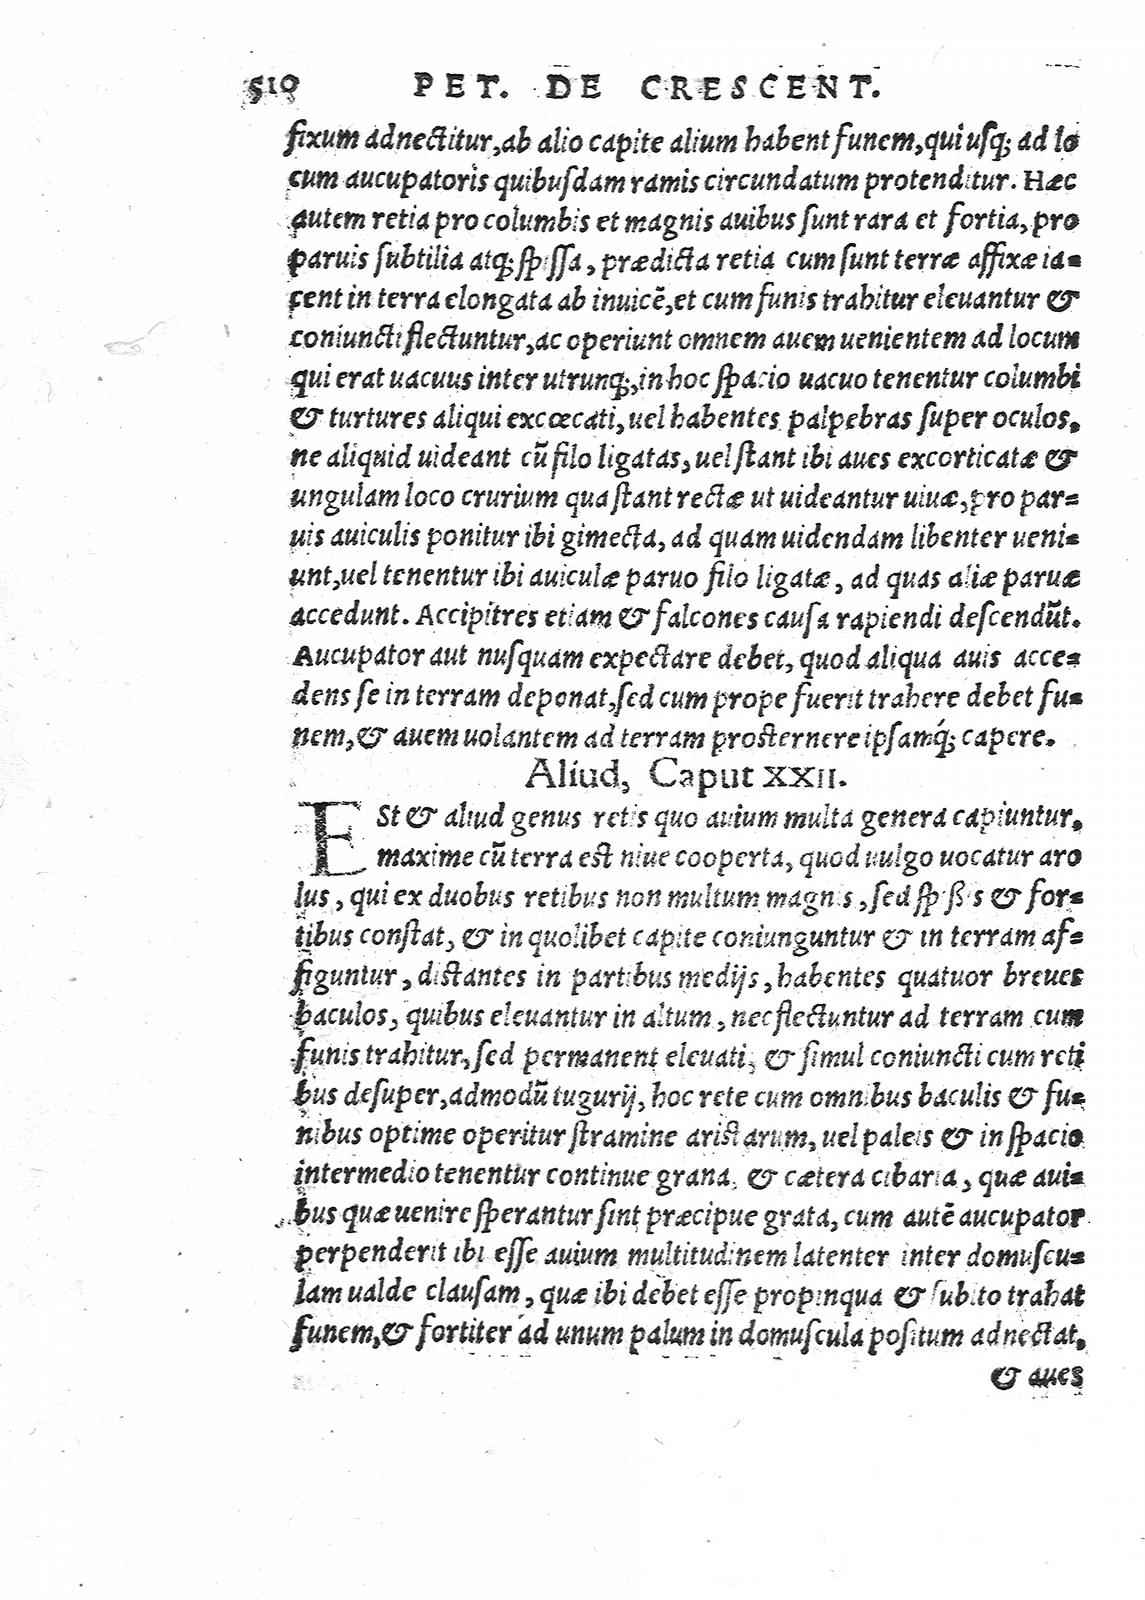 510 PET. DE CRESCENT.
fixum adnectitur, ab alio capite alium habent funem, qui usq; ad lo
cum aucupatoris quibusdam ramis circundatum protenditur. Hæc
autem retia pro columbis et magnis auibus sunt rara et fortia, pro
paruis subtilia atq; spissa, prædicta retia cum sunt terræ affixæ ia=
cent in terra elongata ab inuicē, et cum funis trahitur eleuantur &
coniuncti flectuntur, ac operiunt omnem auem uenientem ad locum
qui erat uacuus inter utrunq;, in hoc spacio uacuo tenentur columbi
& turtures aliqui excœcati, uel habentes palpebras super oculos,
ne aliquid uideant cū filo ligatas, uel stant ibi aues excorticatæ &
ungulam loco crurium qua stant rectæ ut uideantur uiuæ, pro par=
uis auiculis ponitur ibi gimecta, ad quam uidendam libenter ueni=
unt, uel tenentur ibi auiculæ paruo filo ligatæ, ad quas aliæ paruæ
accedunt. Accipitres etiam & falcones causa rapiendi descendūt.
Aucupator aut nusquam expectare debet, quod aliqua auis acce=
dens se in terram deponat, sed cum prope fuerit trahere debet fu=
nem, & auem uolantem ad terram prosternere ipsamq́; capere.
Aliud, Caput XXII.
ESt & aliud genus retis quo auium multa genera capiuntur,
maxime cū terra est niue cooperta, quod uulgo uocatur aro
lus, qui ex duobus retibus non multum magnis, sed spißis & for=
tibus constat, & in quolibet capite coniunguntur & in terram af=
figuntur, distantes in partibus medijs, habentes quatuor breues
baculos, quibus eleuantur in altum, nec flectuntur ad terram cum
funis trahitur, sed permanent eleuati, & simul coniuncti cum reti
bus desuper, admodū tugurij, hoc rete cum omnibus baculis & fu=
nibus optime operitur stramine aristarum, uel paleis & in spacio
intermedio tenentur continue grana, & cætera cibaria, quæ aui=
bus quæ uenire sperantur sint præcipue grata, cum autē aucupator
perpenderit ibi esse auium multitudinem latenter inter domuscu=
lam ualde clausam, quæ ibi debet esse propinqua & subito trahat
funem, & fortiter ad unum palum in domuscula positum adnectat,
& aues